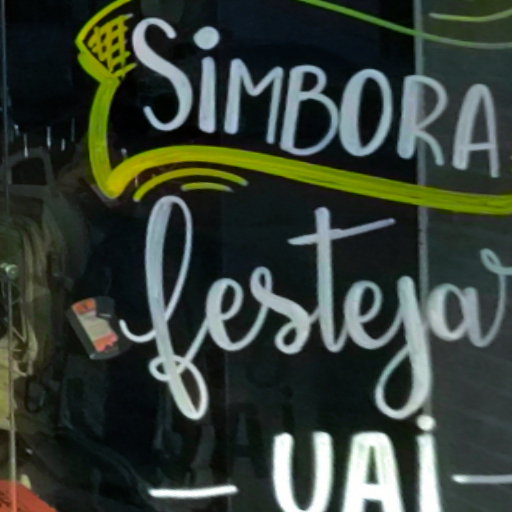 SiMBORA
festejar
— UAi —